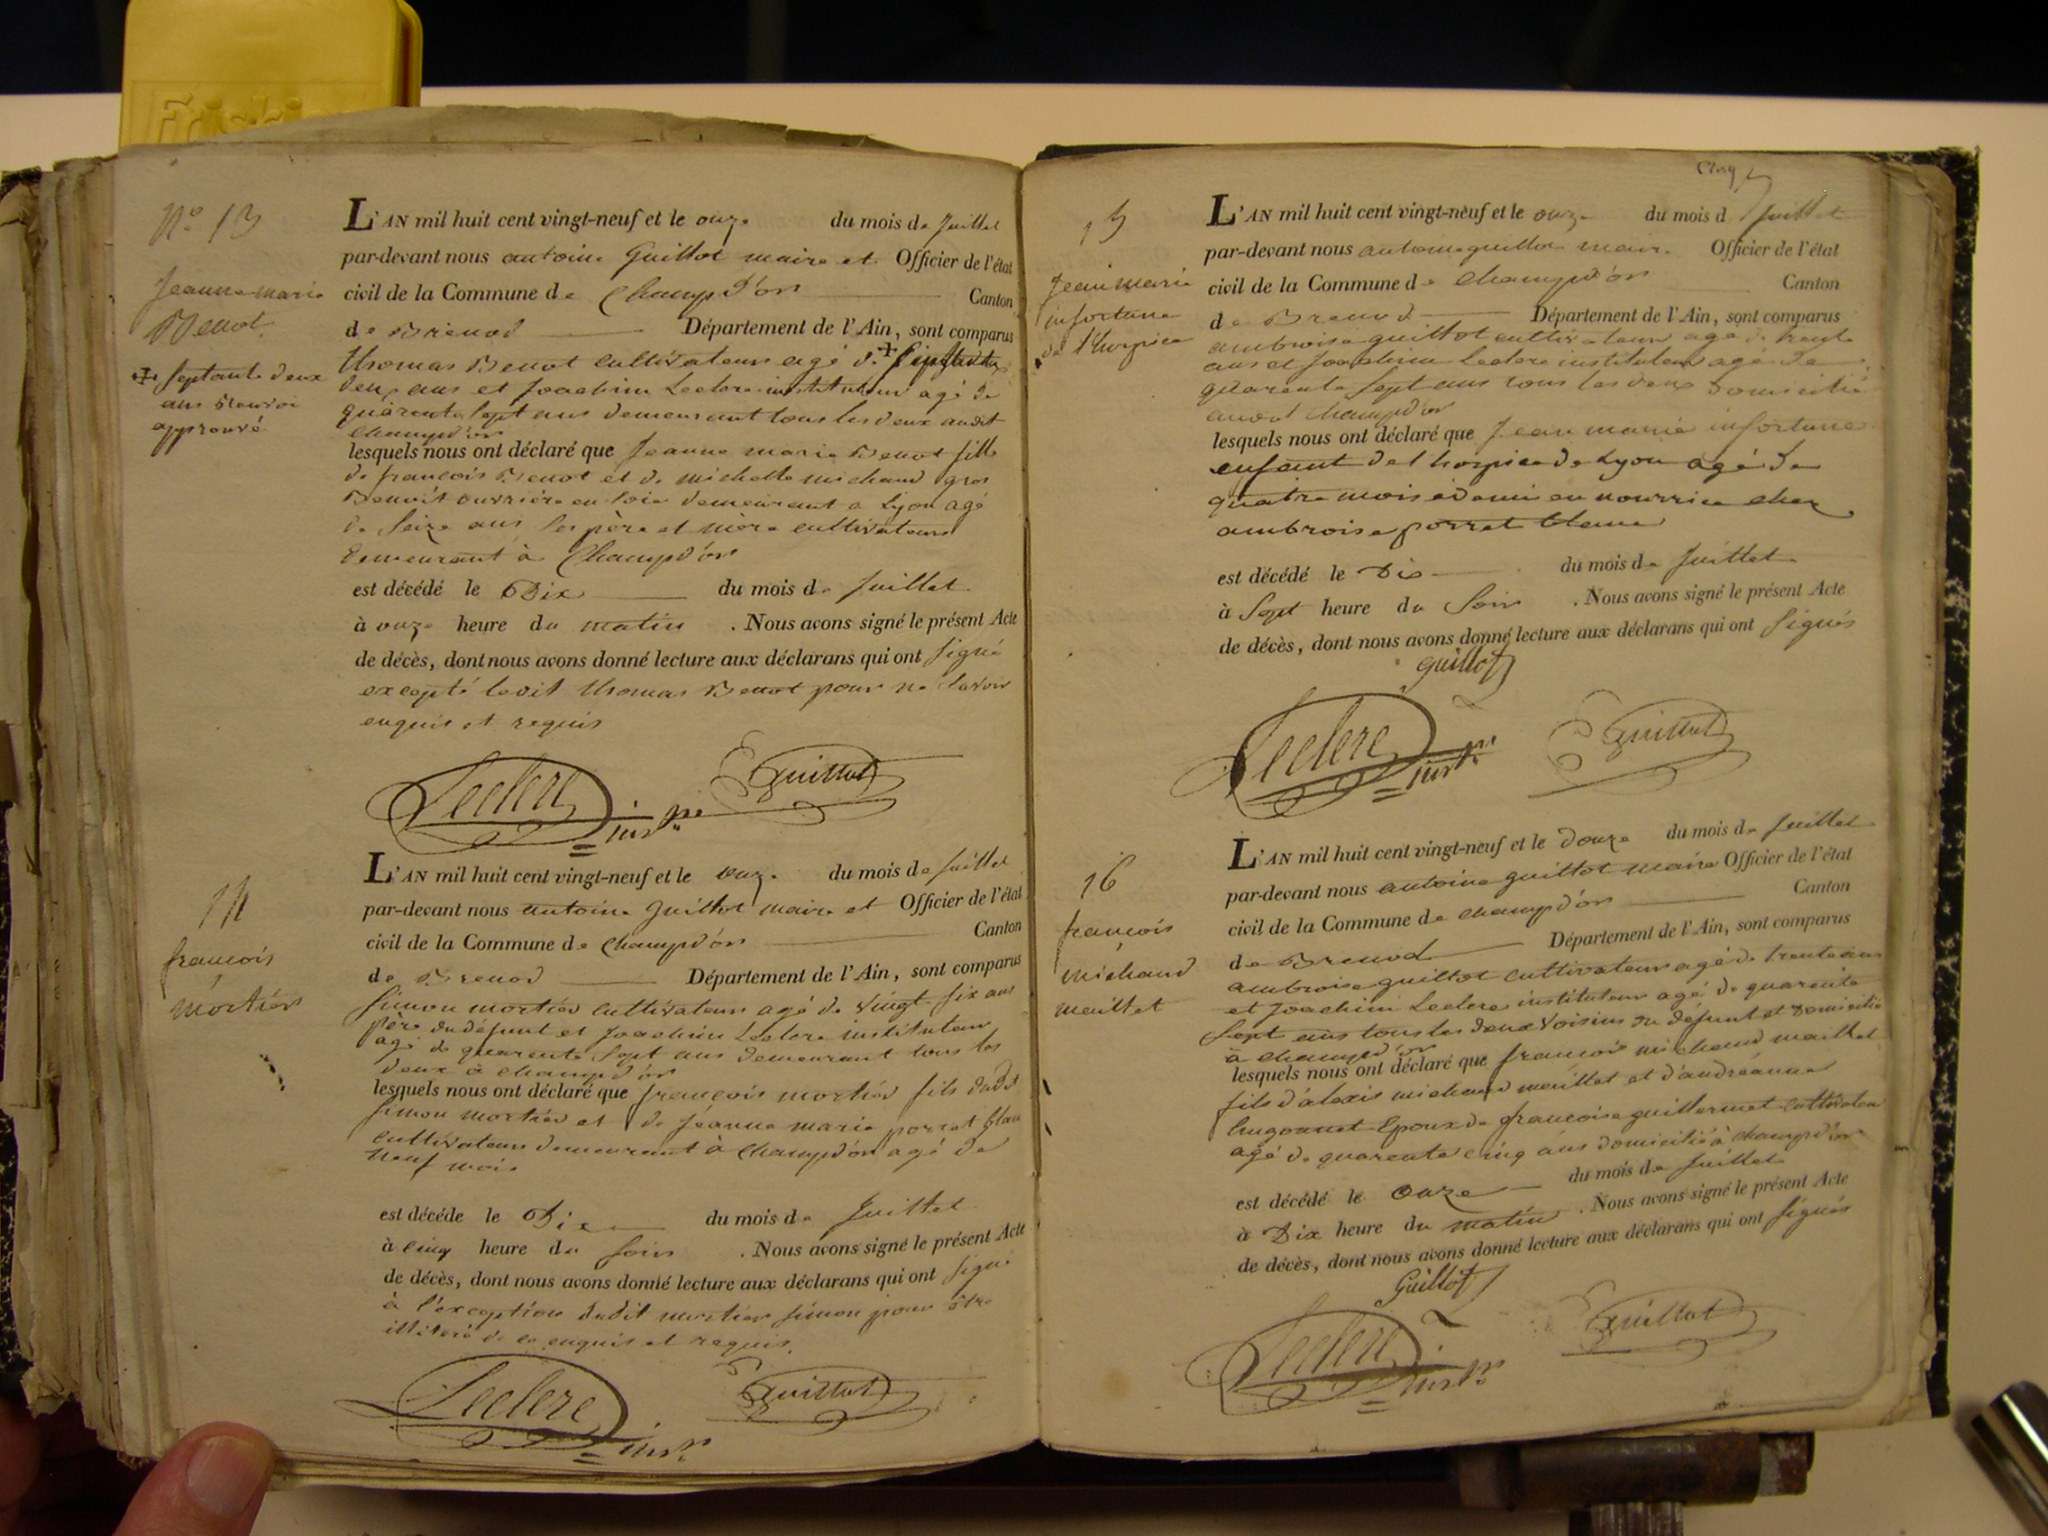 Friski
N° 13
Jeanne marie
Benot
+ septante deux
ans renvoi
approuvé
L'AN mil huit cent vingt-neuf et le onze du mois de juillet
par-devant nous antoine Guillot maire et Officier de l'état
civil de la Commune de Champd'or Canton
de Brenod Département de l'Ain, sont comparus
thomas Benot cultivateur agé de +
deux ans et Joachim Leclerc instituteur agé de
quarente sept ans demeurant tous les deux audit
Champd'or
lesquels nous ont déclaré que Jeanne marie Benot fille
de françois Benot et de michelle michaud gros
Benoit ouvrière en soie demeurant a Lyon agé
de seize ans ses père et mère cultivateurs
demeurant à Champd'or
est décédé le Dix du mois de juillet
à onze heure du matin . Nous avons signé le présent Acte
de décès, dont nous avons donné lecture aux déclarans qui ont signé
excepté ledit thomas Benot pour ne savoir
enquis et requis
Leclerc instr Guillot
14
francois
mortier
L'AN mil huit cent vingt-neuf et le onze du mois de juillet
par-devant nous antoine Guillot maire et Officier de l'état
civil de la Commune de champd'or Canton
de Brenod Département de l'Ain, sont comparus
simon mortier cultivateur agé de vingt six ans
père du défunt et Joachim Leclerc instituteur
agé de quarente sept ans demeurant tous les
deux à champd'or
lesquels nous ont déclaré que françois mortier fils dudit
simon mortier et de Jeanne marie porret blanc
cultivateurs demeurant à Champd'or agé de
neuf mois
est décédé le Dix du mois de juillet
à cinq heure du soir . Nous avons signé le présent Acte
de décès, dont nous avons donné lecture aux déclarans qui ont signé
à l'exception dudit mortier simon pour être
illitéré de ce enquis et requis.
Leclerc instr Guillot
15
Jean marie
infortune
de l'hospice
L'AN mil huit cent vingt-neuf et le onze du mois d juillet
par-devant nous antoine guillot maire Officier de l'état
civil de la Commune de Champd'or Canton
de Brenod Département de l'Ain, sont comparus
ambroise guillot cultivateur agé de trente
ans et Joachim Leclerc instituteur agé de
quarente sept ans tous les deux domicilié
audit Champd'or
lesquels nous ont déclaré que Jean marie infortune
enfant de l'hospice de Lyon agé de
quatre mois et demi en nourrice chez
ambroise porret blanc
est décédé le Dix du mois de juillet
à sept heure du soir . Nous avons signé le présent Acte
de décès, dont nous avons donné lecture aux déclarans qui ont signés
guillot
Leclerc instr Guillot
16
françois
michaud
maillet
L'AN mil huit cent vingt-neuf et le douze du mois de juillet
par-devant nous antoine guillot maire Officier de l'état
civil de la Commune de champd'or Canton
de Brenod Département de l'Ain, sont comparus
ambroise guillot cultivateur agé de trente ans
et Joachim Leclerc instituteur agé de quarente
sept ans tous les deux voisins du défunt et domicilié
à champd'or
lesquels nous ont déclaré que francois michaud maillet
fils d'alexis michaud maillet et d'andréanne
hugonnet Epoux de françoise guillermet cultivateur
agé de quarente cinq ans domicilié à champd'or
est décédé le onze du mois de juillet
à Dix heure du matin . Nous avons signé le présent Acte
de décès, dont nous avons donné lecture aux déclarans qui ont signés
Guillot
Leclerc instr Guillot